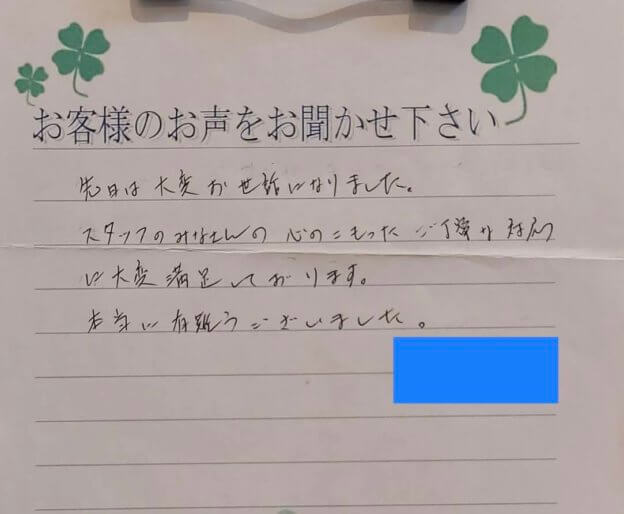 お客様のお声をお聞かせ下さい
先日は大変お世話になりました。
スタッフのみなさんの心のこもったご丁寧な対応
に大変満足しております。
本当に有難うございました。